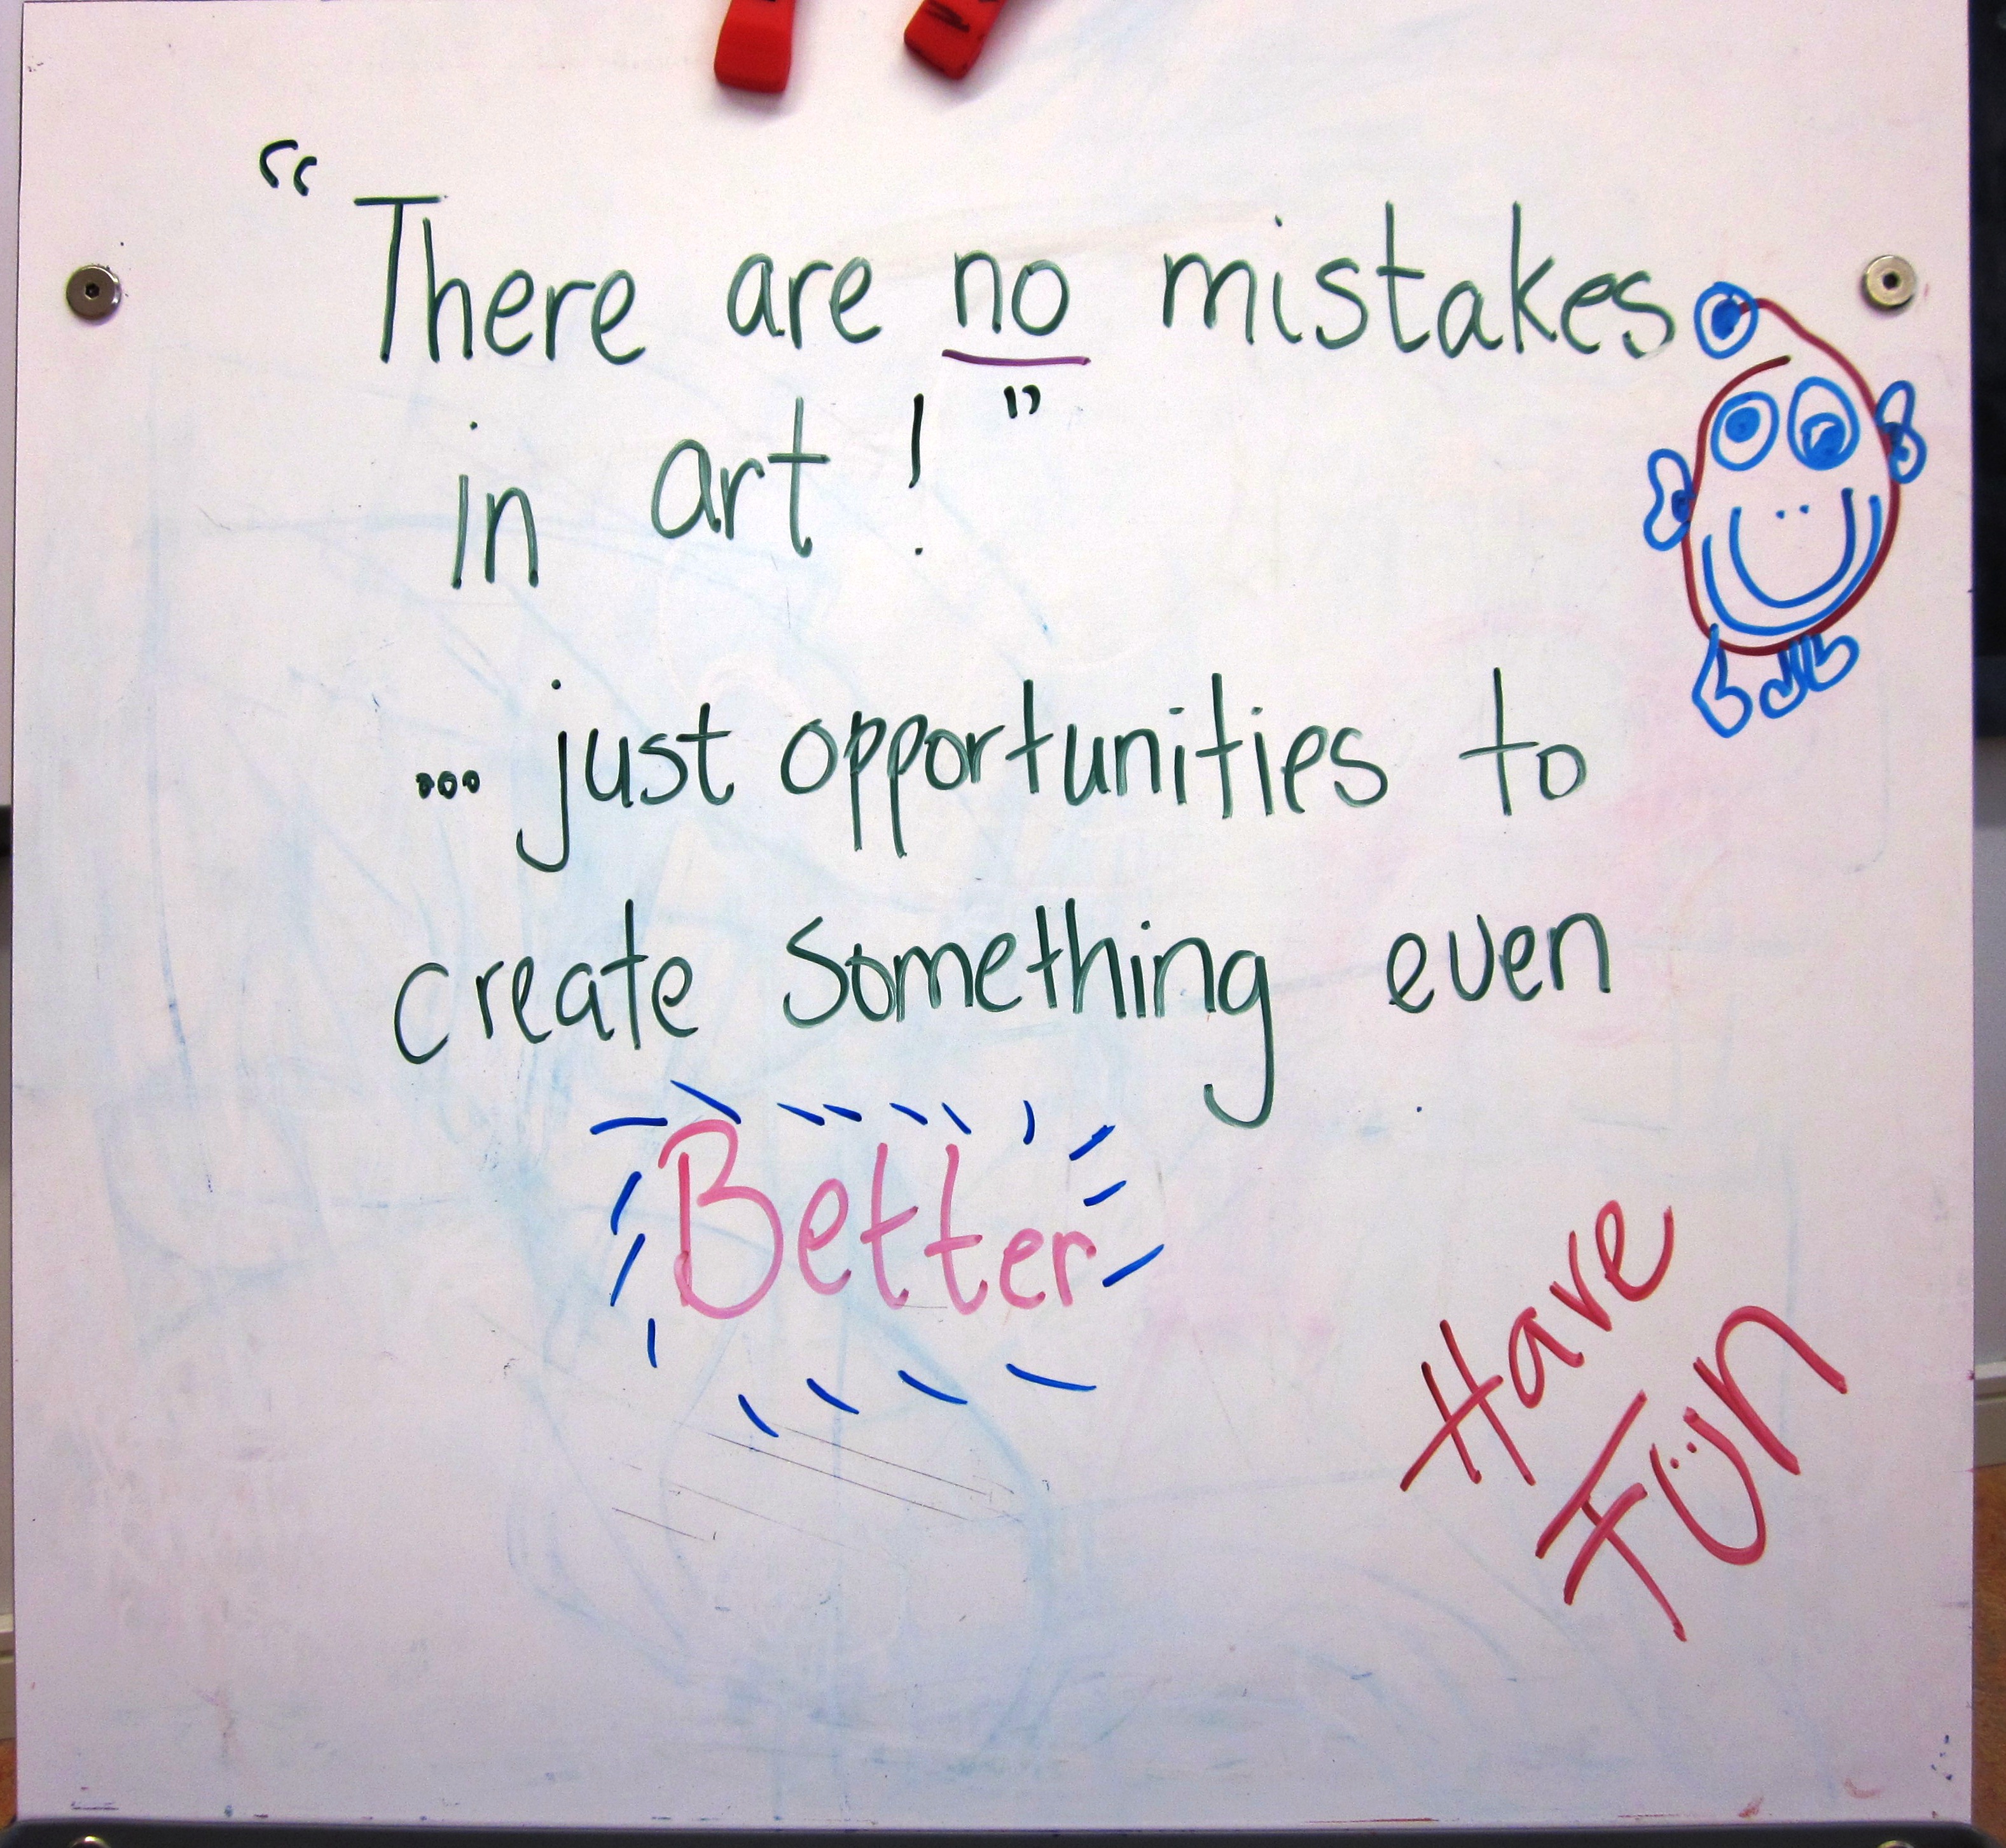 “There are no mistakes
in art!”
... just opportunities to
create something even
Better
Have
Fün